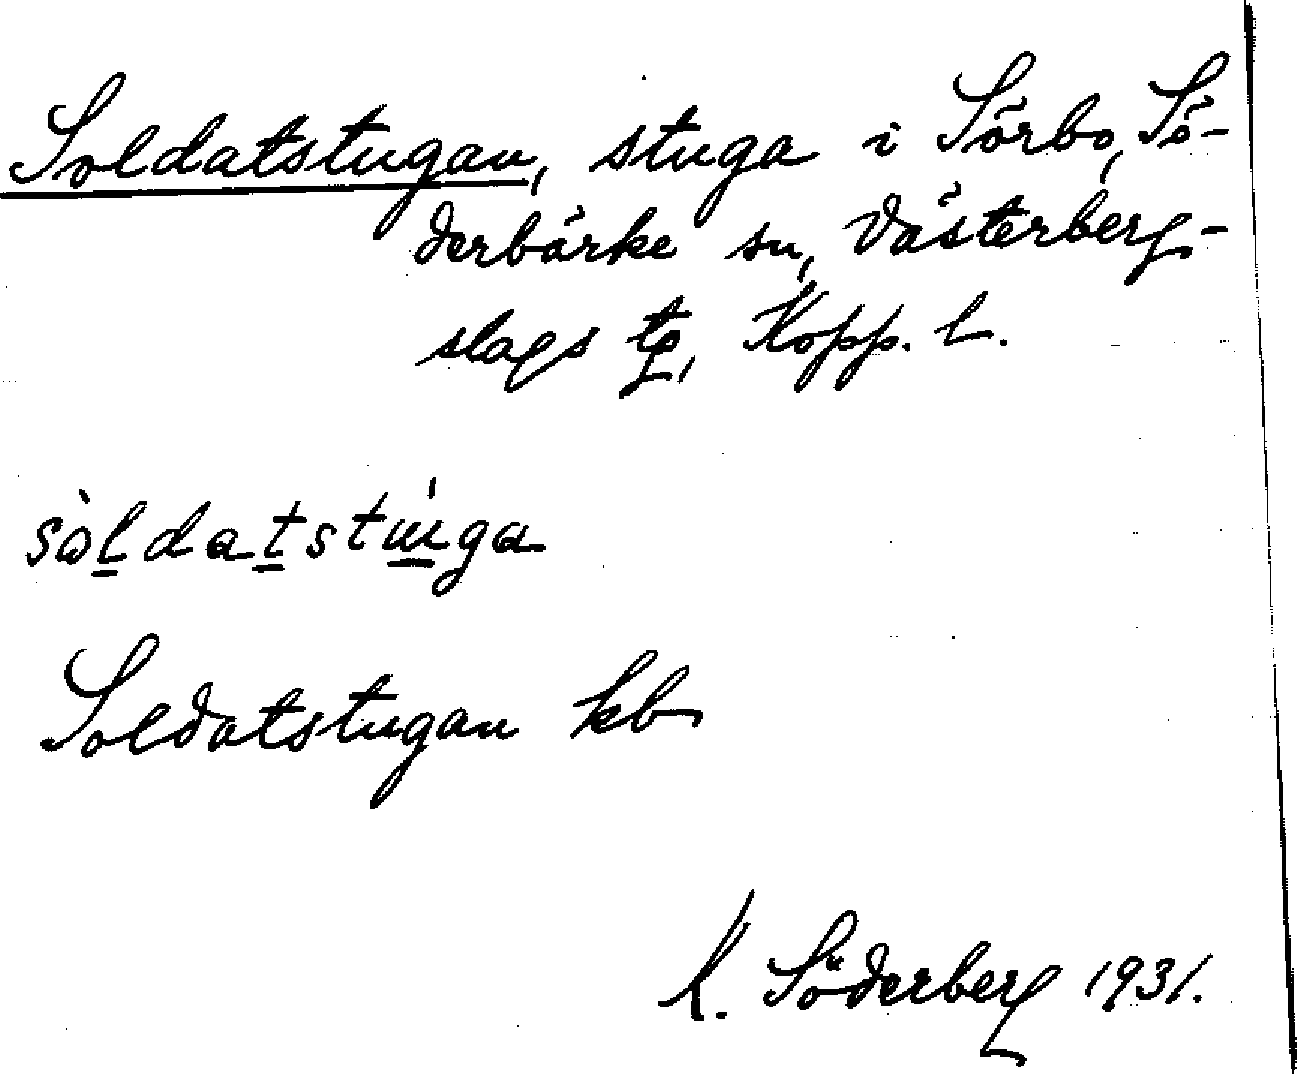 Soldatstugan, stuga i Sörbo, Sö-
derbärke sn, Västerberg-
slags tg, Kopp. l.
sòldatstúga
Soldatstugan kb
K. Söderberg 1931.